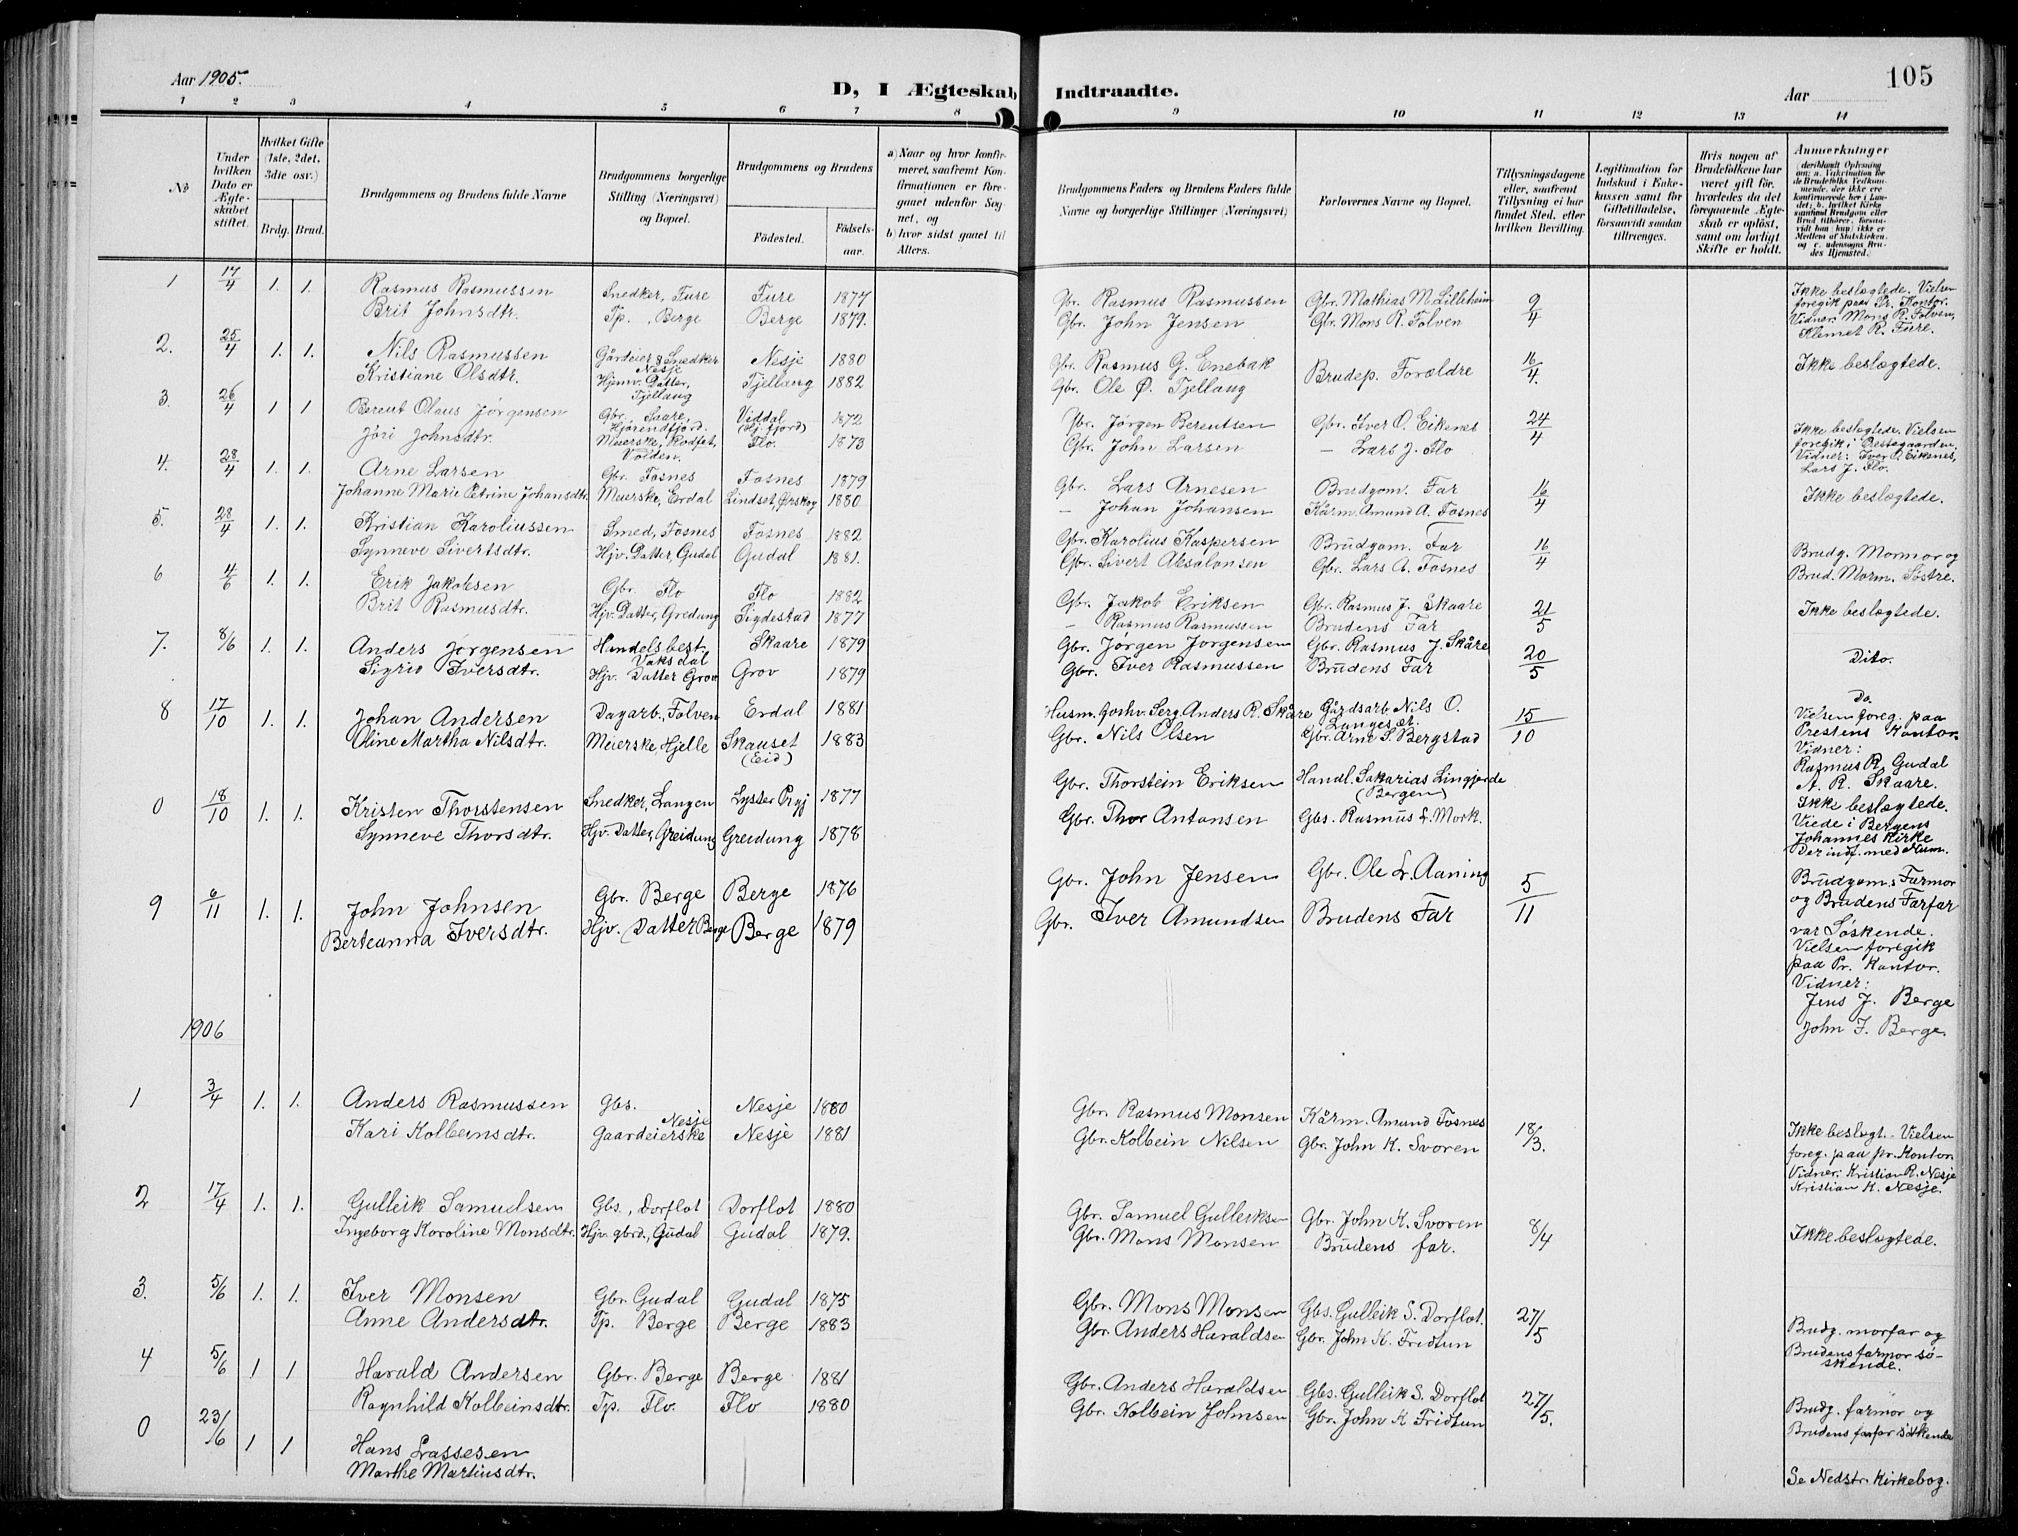 Aar 1905.
D, I Ægteskab Indtraadte.
Aar
105
1 2 3 4 5 6 7 8 9 10 11 12 13 14
No
Under hvilken Dato er Ægteskabet stiftet.
Hvilket Gifte (1ste, 2det, 3die osv.)
Brdg. Brud.
Brudgommens og Brudens fulde Navne
Brudgommens borgerlige Stilling (Næringsvei) og Bopæl.
Brudgommens og Brudens
Fødested.
Fødselsaar.
a) Naar og hvor konfirmeret, saafremt Konfirmationen er foregaaet udenfor Sognet, og
b) hvor sidst gaaet til Alters.
Brudgommens Faders og Brudens Faders fulde Navne og borgerlige Stillinger (Næringsvei)
Forlovernes Navne og Bopæl.
Tillysningsdagene eller, saafremt Tillysning ei har fundet Sted, efter hvilken Bevilling.
Legitimation for Indskud i Kakekassen samt for Giftetilladelse, forsaavidt saadan tiltrænges.
Hvis nogen af Brudefolkene har været gift før, hvorledes da det foregaaende Ægteskab er opløst, samt om lovligt Skifte er holdt.
Anmærkninger
1 17/4 1. 1. Rasmus Rasmussen Snedker, Fure Fure 1877 Gbr. Rasmus Rasmussen Gbr. Mathias M. Lilleheim 9/4 Ikke beslægtede. Vielsen
Brit Johnsdtr. Tp., Berge Berge 1879. Gbr. John Jensen Gbr. Mons R. Tolven foregik paa Pr. Kontor.
Vidner: Mons R. Tolven,
Klemet R. Fure.
2. 25/4 1. 1. Nils Rasmussen Gårdeier & Snedker Nesje Nesje 1880 Gbr. Rasmus G. Enebak Brudep. Forældre 16/4. Ikke beslægtede.
Kristiane Olsdtr. Hjmv. Datter, Tjellaug Tjellaug 1882 Gbr. Ole Ø. Tjellaug
3. 26/4 1 1 Berent Olaus Jørgensen Gbr. Saare, Hjørendfjord. Viddal (Hj.fjord) 1872 Gbr. Jørgen Berentsen Gbr. Iver O. Eikenes 24/4 Ikke beslægtede. Vielsen
Jøri Johnsdtr. Meierske, Rodset, Volden. Flo. 1873 Gbr. John Larsen — Lars J. Flo foregik i Prestegaarden
Vidner: Iver O. Eikenes,
Lars J. Flo.
4. 28/4 1. 1. Arne Larsen Gbr. Fosnes Fosnes 1879 Gbr. Lars Arnesen Brudgom. Far 16/4 Ikke beslægtede.
Johanne Marie Petrine Johansdtr. Meierske, Erdal Lindset, Ørskog 1880 — Johan Johansen Kårm. Amund A. Fosnes
5. 28/4 1. 1. Kristian Karoliussen Smed, Fosnes Fosnes 1882 Gbr. Karolius Kaspersen Brudgom. Far 16/4 Brudg. Mormor og
Synneve Sivertsdtr. Hjv. Datter Gudal Gudal 1881. Gbr. Sivert Absalonsen Gbr. Lars A. Fosnes Brud. Morm. Søstre.
6 4/6 1. 1. Erik Jakobsen Gbr. Flo Flo 1882 Gbr. Jakob Eriksen Gbr. Rasmus J. Skaare 21/5 Ikke beslægtede.
Brit Rasmusdtr. Hjv. Datter, Gredung Sigdestad 1877 — Rasmus Rasmussen Brudens Far
7. 8/6 1. 1. Anders Jørgensen Handelsbest. Vaksdal Skaare 1879 Gbr. Jørgen Jørgensen Gbr. Rasmus J. Skåre 20/5 Dito.
Sigrid Iversdtr. Hjv. Datter Grov Grov 1879 Gbr. Iver Rasmussen Brudens Far
8 17/10 1. 1. Johan Andersen Dagarb., Tolven Erdal 1881 Husm. Anders R. Skåre Gårdsarb Nils O. Langeset. 15/10 Do.
Oline Martha Nilsdtr. Meierske, Hjelle Skauset (Eid) 1883 Gbr. Nils Olsen Gbr. Arne S. Bergstad Vielsen foreg. paa
Prestens Kontor.
Vidner:
Rasmus R. Gudal
A. R. Skaare.
0 18/10 1. 1. Kristen Thorstensen Snedker, Langen Lyster Prgj 1877 Gbr. Thorstein Eriksen Handl. Sakarias Lingjorde (Bergen) Ikke beslægtede.
Synneve Thorsdtr. Hjv. Datter, Greidung Greidung 1878 Gbr. Thor Antonsen Gbs. Rasmus L. Mork. Viede i Bergens
Johannes Kirke
Der indf. med Num.
9 6/11 1. 1. John Johnsen Gbr. Berge Berge 1876 Gbr. John Jensen Gbr. Ole Lr. Aaning 5/11 Brudgom.s Farmor
Berteanna Iversdtr. Hjv. Datter Berge Berge 1879 Gbr. Iver Amundsen Brudens Far og Brudens Farfar
var Søskende.
Vielsen foregik
paa Pr. Kontor.
Vidner:
Jens J. Berge
John I. Berge.
1906
1 3/4 1. 1. Anders Rasmussen Gbs. Nesje Nesje 1880 Gbr. Rasmus Monsen Kårm. Amund Fosnes 18/3. Ikke beslægt. Vielsen
Kari Kolbeinsdtr. Gaardeierske Nesje 1881 Gbr. Kolbein Nilsen Gbr. John K. Svoren foreg. paa pr. Kontor.
Vidner: Kristian R. Nesje
Kristian K. Nesje.
2 17/4 1. 1. Gulleik Samuelsen Gbs., Dorflot Dorflot 1880 Gbr. Samuel Gulleiksen Gbr. John K. Svoren 8/4 Ikke beslægtede.
Ingeborg Karoline Monsdtr. Hjv. gbrd., Gudal Gudal 1879. Gbr. Mons Monsen Brudens far.
3. 5/6 1. 1. Iver Monsen Gbr. Gudal Gudal 1875 Gbr. Mons Monsen Gbs. Gulleik S. Dorflot. 27/5 Brudg. morfar og
Anne Andersdtr. Tp. Berge Berge 1883 Gbr. Anders Haraldsen Gbr. John K. Fridtun Brudens farmor søskende.
4 5/6 1 1 Harald Andersen Gbr. Berge Berge 1881 Gbr. Anders Haraldsen Gbs. Gulleik S. Dorflot 27/5. Brudg. farmor og
Ragnhild Kolbeinsdtr. Tp. Flo. Flo 1880 Gbr. Kolbein Johnsen Gbr. John K Fridtun Brudens farfar søskende
0 23/6 1 1 Hans Lassesen
Marthe Martinsdtr. Se Nedstr. Kirkebog.